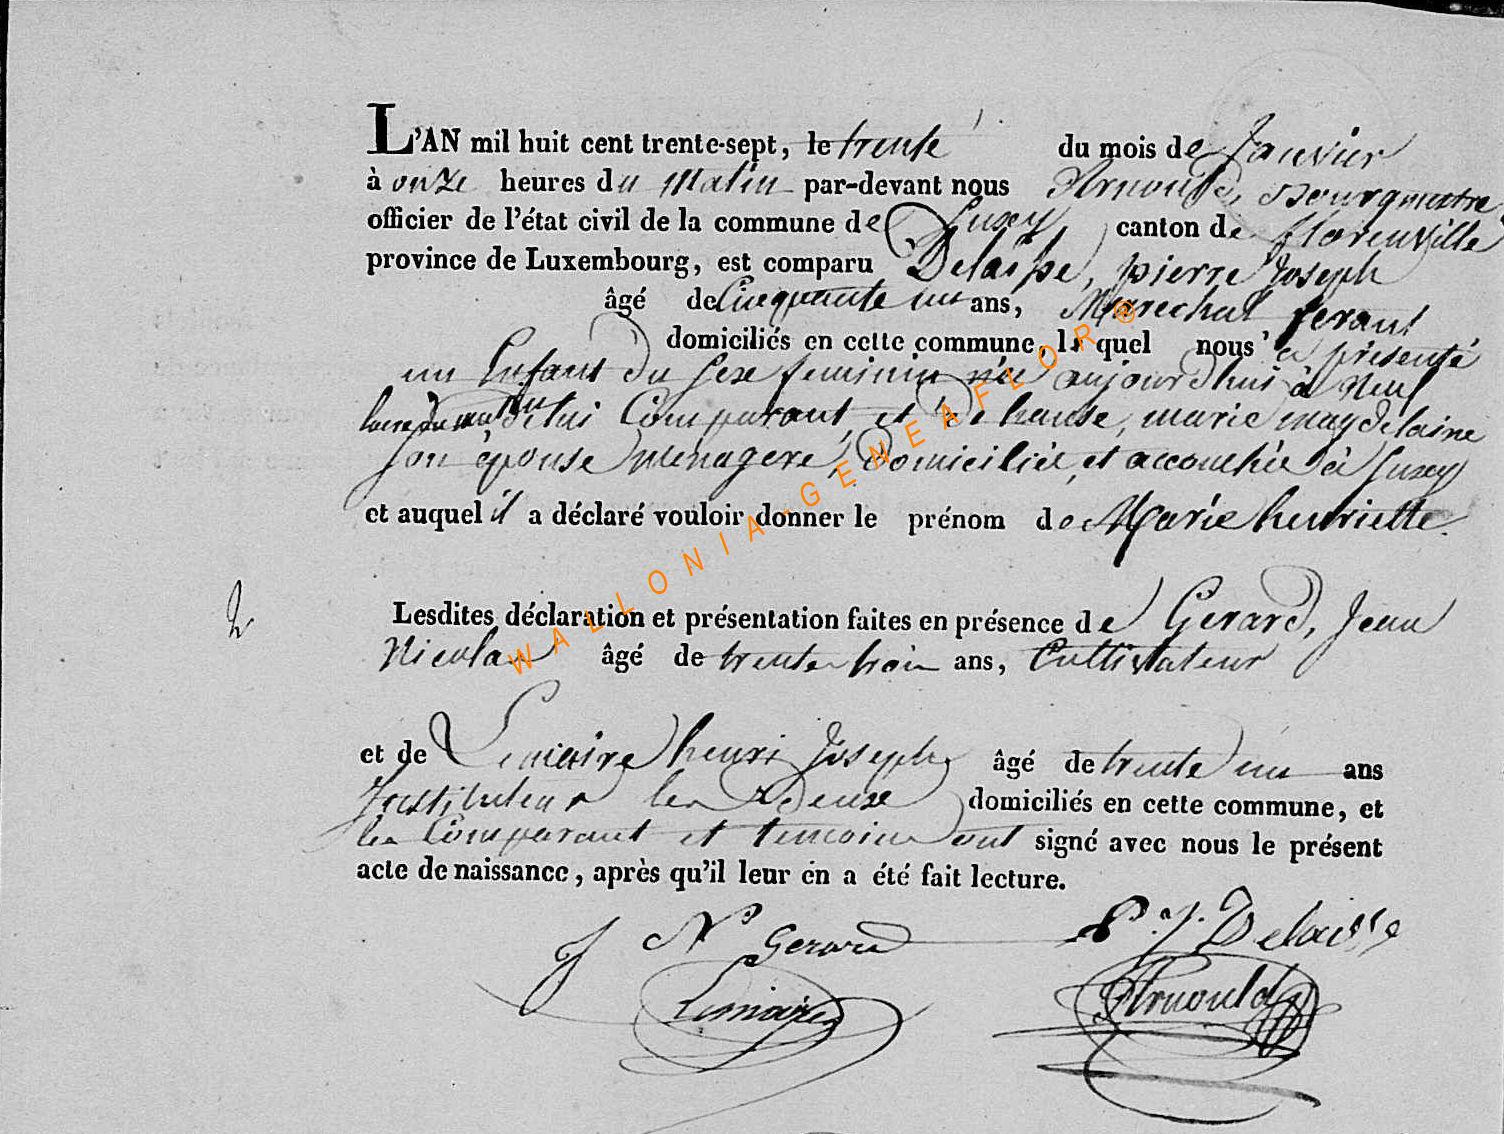 L'AN mil huit cent trente-sept, le trente du mois de Janvier
à onze heures du Matin par-devant nous Arnould, Bourgmettre
officier de l'état civil de la commune de Suxy canton de florenville
province de Luxembourg, est comparu Delaisse, pierre Joseph
âgé de Cinquante un ans, Marechal ferant
domiciliés en cette commune, le quel nous a présenté
un Enfant du Sexe feminin née aujourdhui à neuf
heure du matin de lui Comparant, et de hause, marie magdelaine
son épouse ménagere, domiciliée, et accouchée à Suxy
et auquel il a déclaré vouloir donner le prénom de Marie henriette
2
Lesdites déclaration et présentation faites en présence de Gerard, Jean
Nicolas âgé de trente trois ans, Cultivateur
et de Lemaire henri Joseph âgé de trente un ans
Instituteur les deux domiciliés en cette commune, et
les Comparant et temoins ont signé avec nous le présent
acte de naissance, après qu'il leur en a été fait lecture.
J N Gerard P. J. Delaisse
Lemaire Arnould
WALLONIA-GENEAFLOR®